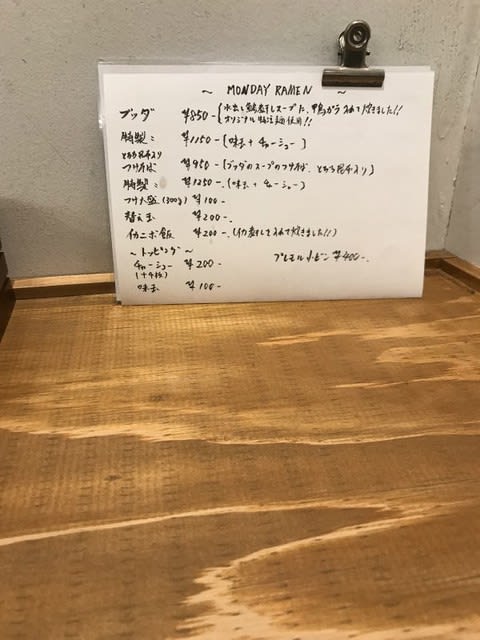 ~ MONDAY RAMEN ~
ブッダ ¥850- {水出し鶏煮干しスープに、鴨ガラ入れて炊きました!!
オリジナル特注麺使用!!
特製〃 ¥1150- (味玉+チャーシュー)
とろろ昆布入り
つけそば ¥950- (ブッダのスープのつけそば、とろろ昆布入り)
特製〃 ¥1250-. (味玉+チャーシュー)
つけ大盛(300g) ¥100-
替え玉 ¥200-.
イカニボ飯 ¥200-. (イカ煮干し入れて炊きました!!)
~トッピング~
チャーシュー ¥200-
(+4枚)
味玉 ¥100-
プレモル小ビン ¥400-.